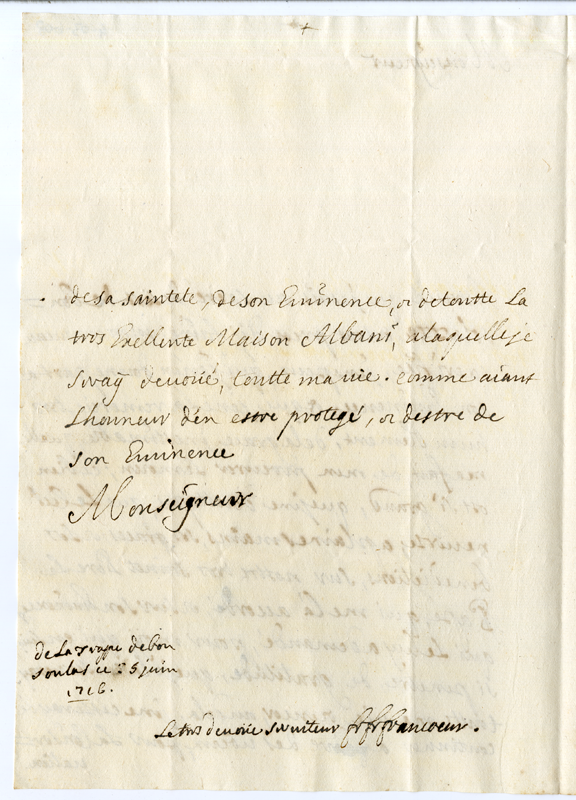 +
de sa saintete, de son Eminence, et de toutte La
tres Exellente Maison Albani, a laquelle je
seray devoüé, toutte ma vie. comme aiant
Lhonneur d'en estre protegé, et destre de
son Eminence
Monseigneur
de La trappe de bon
soulas ce 5 juin
1716.
Le tres devoüé serviteur fr francoeur.